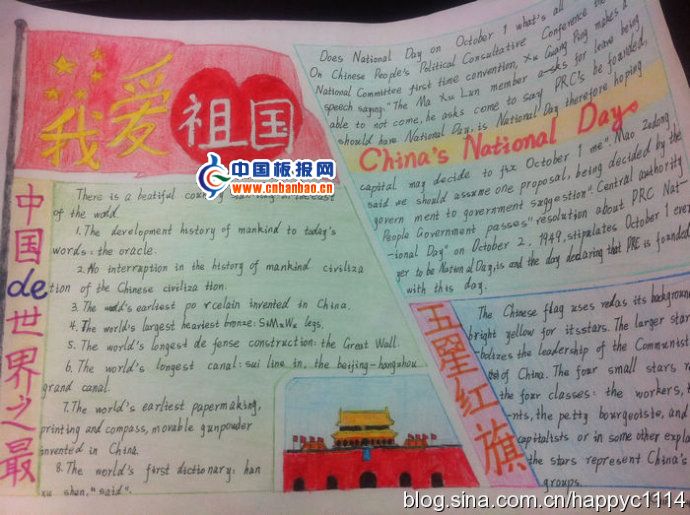 我爱祖国
中国板报网
www.cnbanbao.cn
中国de世界之最
There is a beatiful
of the world.
1. The development history of mankind to today's
words: the oracle.
2. No interruption in the history of mankind civiliza
tion of the Chinese civiliza tion.
3. The world's earliest po rcelain invented in China.
4. The world's largest heaviest bronze: SiMuWu legs.
5. The world's longest de fense construction: the Great Wall.
6. The world's longest canal: sui line in, the beijing-hangzhou
grand canal.
7. The world's earliest papermaking,
printing and compass, movable gunpowder
invented in China.
8. The world's first dictionary: han
xu shen, "said".
Does National Day on October 1 what's all
On Chinese People's Political Consultative Conference the
National Committee first time convention, Xu Guang Ping makes a
speech saying: "The Ma Xu Lun member asks for leave being
able to not come, he asks come to say PRC's be founded,
should have National Day, is National Day therefore hoping
China's National Days
capital may decide to fix October 1 me". Mao Zedong
said we should assume one proposal, being decided by the
govern ment to government suggestion". Central authority
People Government passes "resolution about PRC Nat-
-ional Day" on October 2, 1949, stipulates October 1 ever
ger to be National Day, is and the day declaring that PRC is founded
with this day.
五星红旗
The Chinese flag uses red as its background
bright yellow for its stars. The larger star
-bolizes the leadership of the Communist
of China. The four small stars r
the four classes: the workers, t
-nts, the petty bourgeoisie, and
capitalists or in some other expla
the stars represent China's
groups.
blog.sina.com.cn/happyc1114